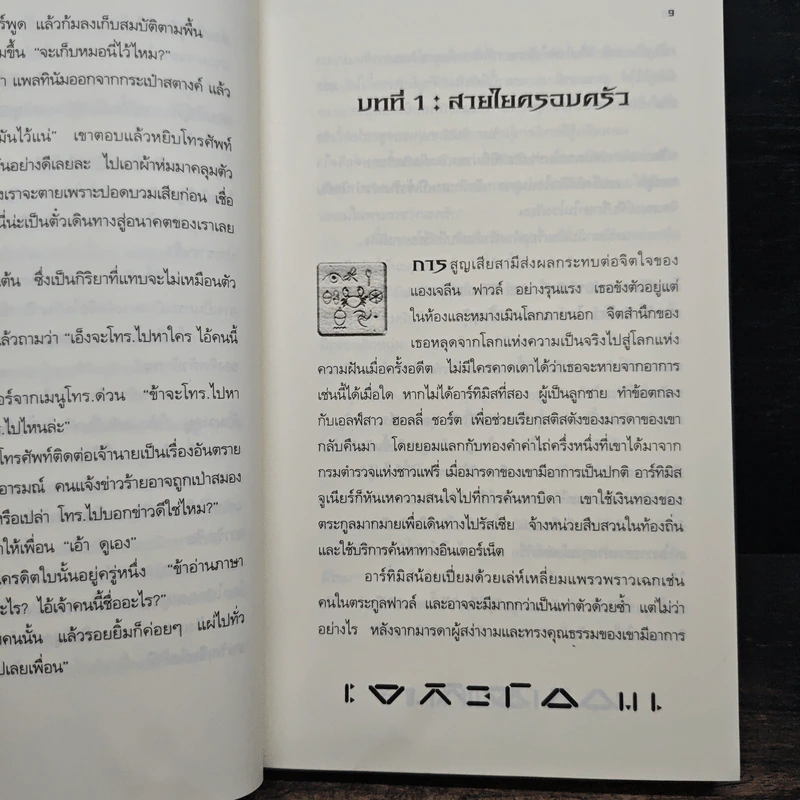 ร์พูด แล้วก้มลงเก็บสมบัติตามพื้น
มขึ้น “จะเก็บหมอนี่ไว้ไหม?”
า แพลทินัมออกจากกระเป๋าสตางค์ แล้ว
มันไว้แน่” เขาตอบแล้วหยิบโทรศัพท์
ันอย่างดีเลยละ ไปเอาผ้าห่มมาคลุมตัว
งเราจะตายเพราะปอดบวมเสียก่อน เชื่อ
นี่น่ะเป็นตั๋วเดินทางสู่อนาคตของเราเลย
เต้น ซึ่งเป็นกิริยาที่แทบจะไม่เหมือนตัว
แล้วถามว่า “เอ็งจะโทร.ไปหาใคร ไอ้คนนี้
อร์จากเมนูโทร.ด่วน “ข้าจะโทร.ไปหา
ร.ไปไหนล่ะ”
โทรศัพท์ติดต่อเจ้านายเป็นเรื่องอันตราย
อารมณ์ คนแจ้งข่าวร้ายอาจถูกเป่าสมอง
หรือเปล่า โทร.ไปบอกข่าวดีใช่ไหม?”
าให้เพื่อน “เอ้า ดูเอง”
เครดิตใบนั้นอยู่ครู่หนึ่ง “ข้าอ่านภาษา
อะไร? ไอ้เจ้าคนนี้ชื่ออะไร?”
งคนนั้น แล้วรอยยิ้มก็ค่อยๆ แผ่ไปทั่ว
ปเลยเพื่อน”
9
บทที่ 1 : สายใยครอบครัว
การสูญเสียสามีส่งผลกระทบต่อจิตใจของ
แองเจลีน ฟาวล์ อย่างรุนแรง เธอขังตัวอยู่แต่
ในห้องและหมางเมินโลกภายนอก จิตสำนึกของ
เธอหลุดจากโลกแห่งความเป็นจริงไปสู่โลกแห่ง
ความฝันเมื่อครั้งอดีต ไม่มีใครคาดเดาได้ว่าเธอจะหายจากอาการ
เช่นนี้ได้เมื่อใด หากไม่ได้อาร์ทิมิสที่สอง ผู้เป็นลูกชาย ทำข้อตกลง
กับเอลฟ์สาว ฮอลลี่ ชอร์ต เพื่อช่วยเรียกสติสตังของมารดาของเขา
กลับคืนมา โดยยอมแลกกับทองคำค่าไถ่ครึ่งหนึ่งที่เขาได้มาจาก
กรมตำรวจแห่งชาวแฟรี่ เมื่อมารดาของเขามีอาการเป็นปกติ อาร์ทิมิส
จูเนียร์ก็หันเหความสนใจไปที่การค้นหาบิดา เขาใช้เงินทองของ
ตระกูลมากมายเพื่อเดินทางไปรัสเซีย จ้างหน่วยสืบสวนในท้องถิ่น
และใช้บริการค้นหาทางอินเตอร์เน็ต
อาร์ทิมิสน้อยเปี่ยมด้วยเล่ห์เหลี่ยมแพรวพราวเฉกเช่น
คนในตระกูลฟาวล์ และอาจจะมีมากกว่าเป็นเท่าตัวด้วยซ้ำ แต่ไม่ว่า
อย่างไร หลังจากมารดาผู้สง่างามและทรงคุณธรรมของเขามีอาการ